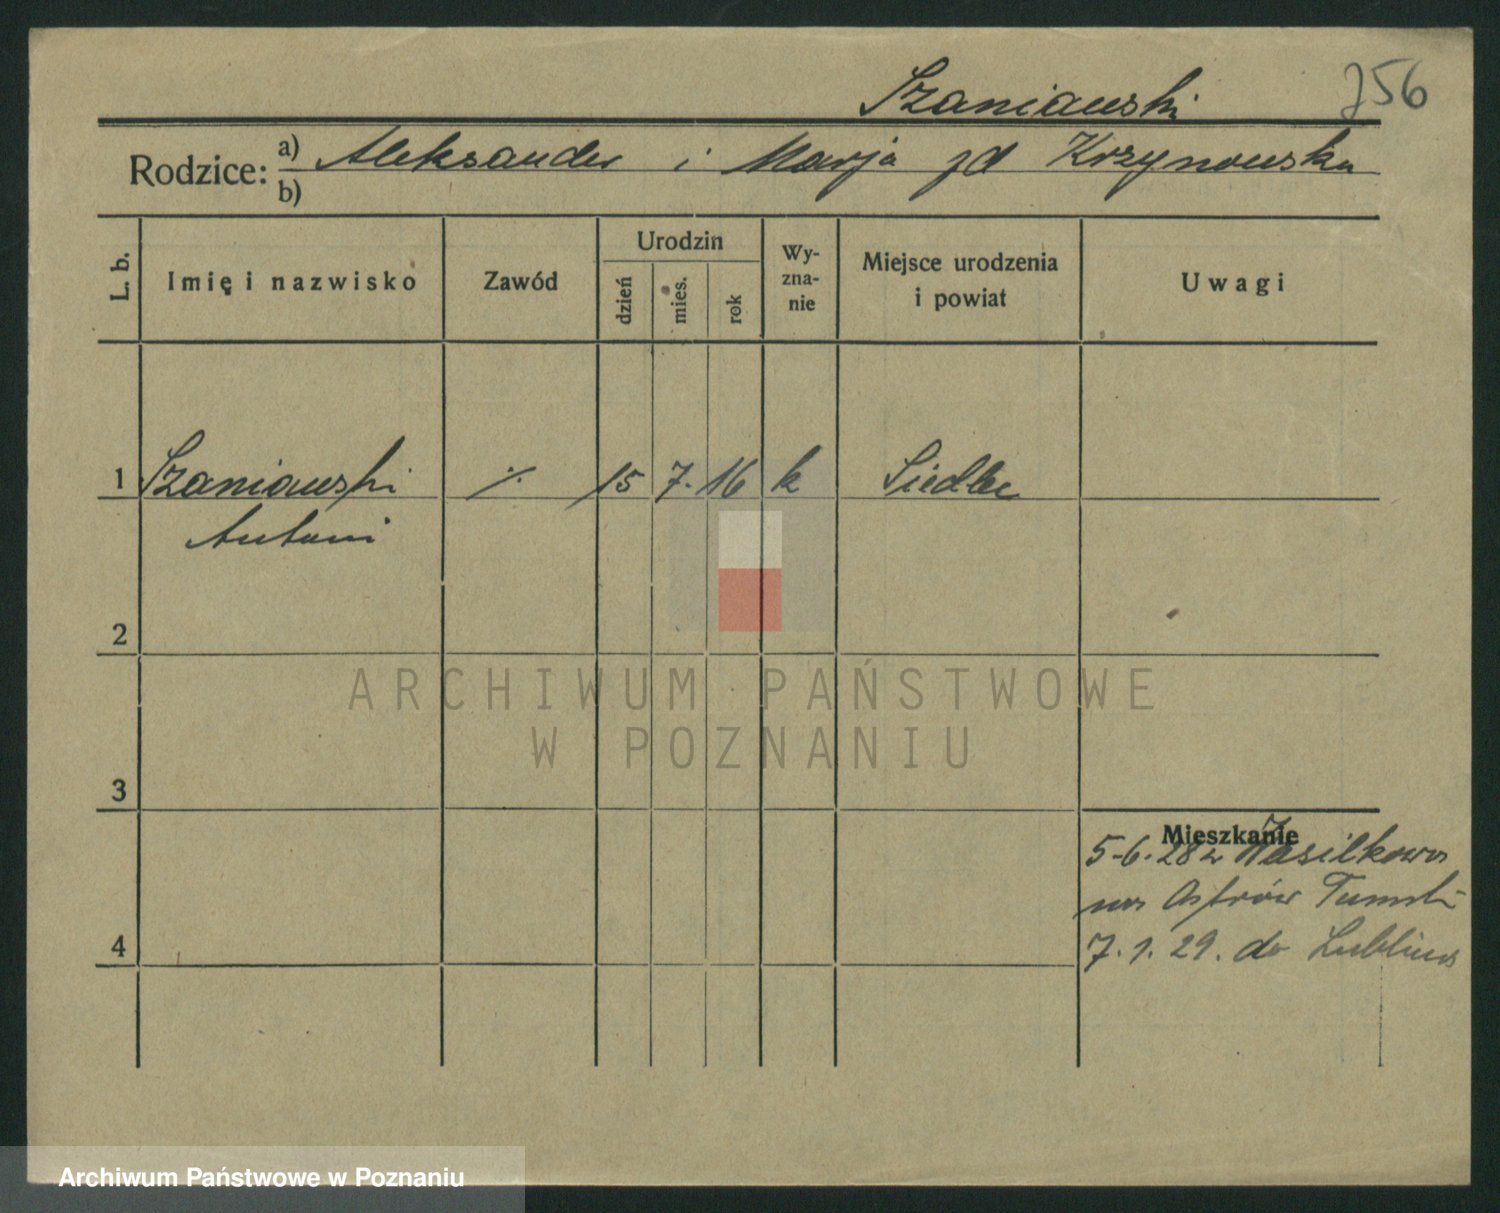 Szaniawski
756
Rodzice: a) Aleksander i Marja zd Krzynowska
b)
L. b.
Imię i nazwisko
Zawód
Urodzin
dzień
mies.
rok
Wy-
zna-
nie
Miejsce urodzenia
i powiat
Uwagi
1 Szaniawski ·/. 15 7. 16 k Siedlec
Antoni
2
ARCHIWUM PAŃSTWOWE
W POZNANIU
3
Mieszkanie
5-6.28 z Wasilkowa
na Ostrów Tumski
7.1.29. do Lublina
4
Archiwum Państwowe w Poznaniu